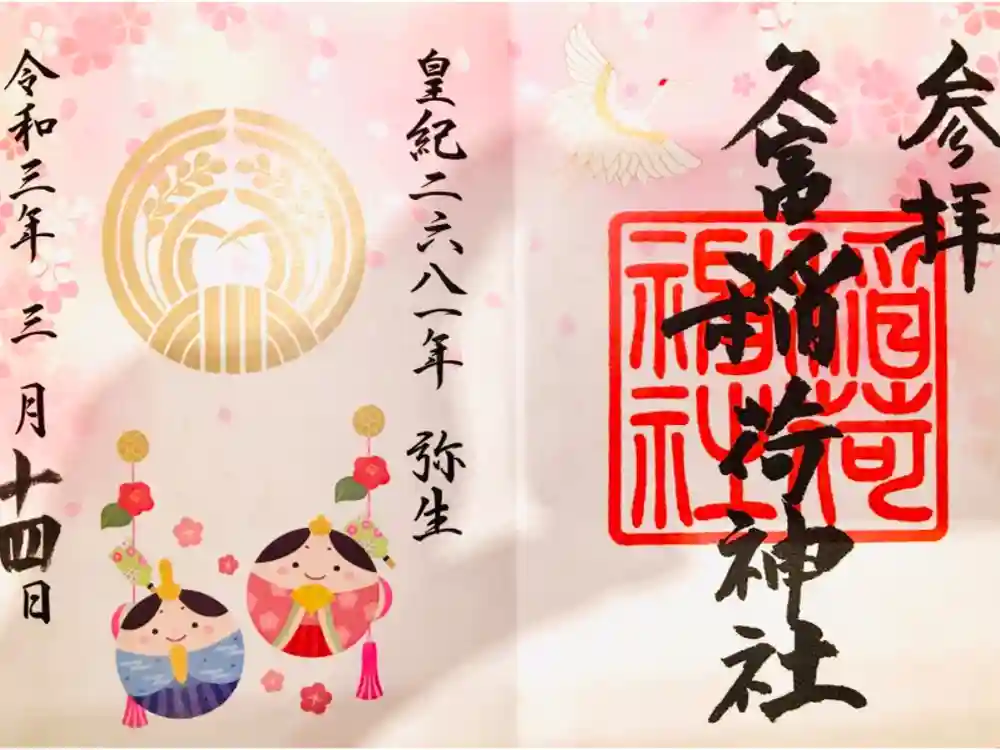 参拝
久富稲荷神社
稲荷
神社
皇紀二六八一年 弥生
令和三年 三月十四日